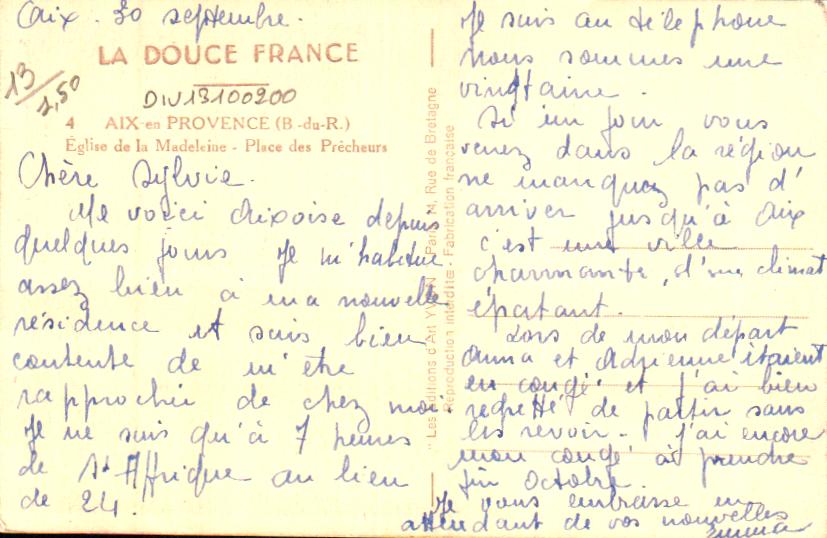 Aix. 30 septembre.
LA DOUCE FRANCE
13
2,50
DIV13100200
4 AIX-en PROVENCE (B-du-R.)
Église de la Madeleine - Place des Prêcheurs
Chère Sylvie.
Me voici Aixoise depuis
quelques jours Je m'habitue
assez bien à ma nouvelle
résidence et suis bien
contente de m'être
rapprochée de chez moi.
Je ne suis qu'à 7 heures
de St Affrique au lieu
de 24.
"Les Editions d'Art YVON Paris 14, Rue de Bretagne
Reproduction interdite - Fabrication française
Je suis au téléphone
nous sommes une
vingtaine.
Si un jour vous
venez dans la région
ne manquez pas d'
arriver jusqu'à Aix
c'est une ville
charmante, d'un climat
épatant.
Lors de mon départ
Anna et Adrienne étaient
en congé et j'ai bien
regretté de partir sans
les revoir - j'ai encore
mon congé à prendre
fin Octobre.
Je vous embrasse en
attendant de vos nouvelles
Emma